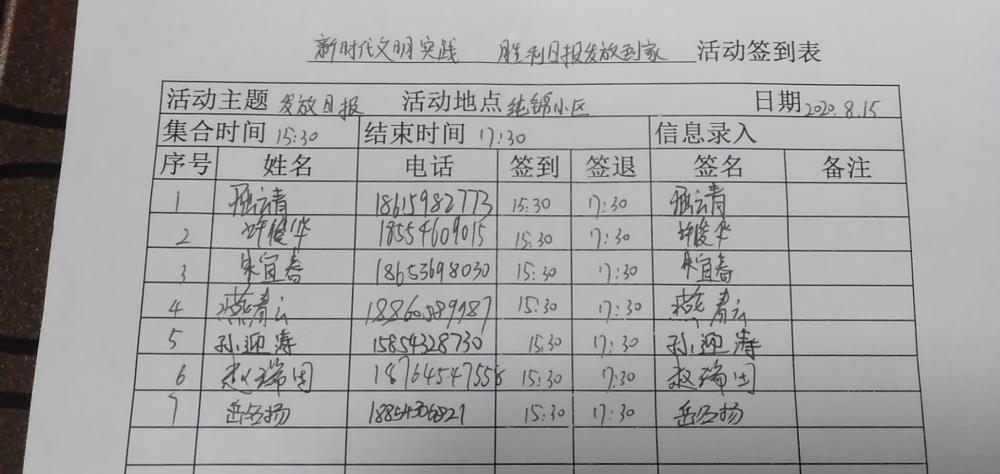 新时代文明实践 胜利日报发放到家 活动签到表
活动主题 发放日报 活动地点 纯锦小区 日期 2020.8.15
集合时间 15:30 结束时间 17:30 信息录入
序号 姓名 电话 签到 签退 签名 备注
1 云青 18615982773 15:30 17:30 云青
2 许俊华 18554609015 15:30 17:30 许俊华
3 朱宜春 18653698030 15:30 17:30 朱宜春
4 燕青云 15:30 17:30 燕青云
5 孙迎涛 15854328730 15:30 17:30 孙迎涛
6 赵瑞田 18764547558 15:30 17:30 赵瑞田
7 岳名扬 15:30 17:30 岳名扬